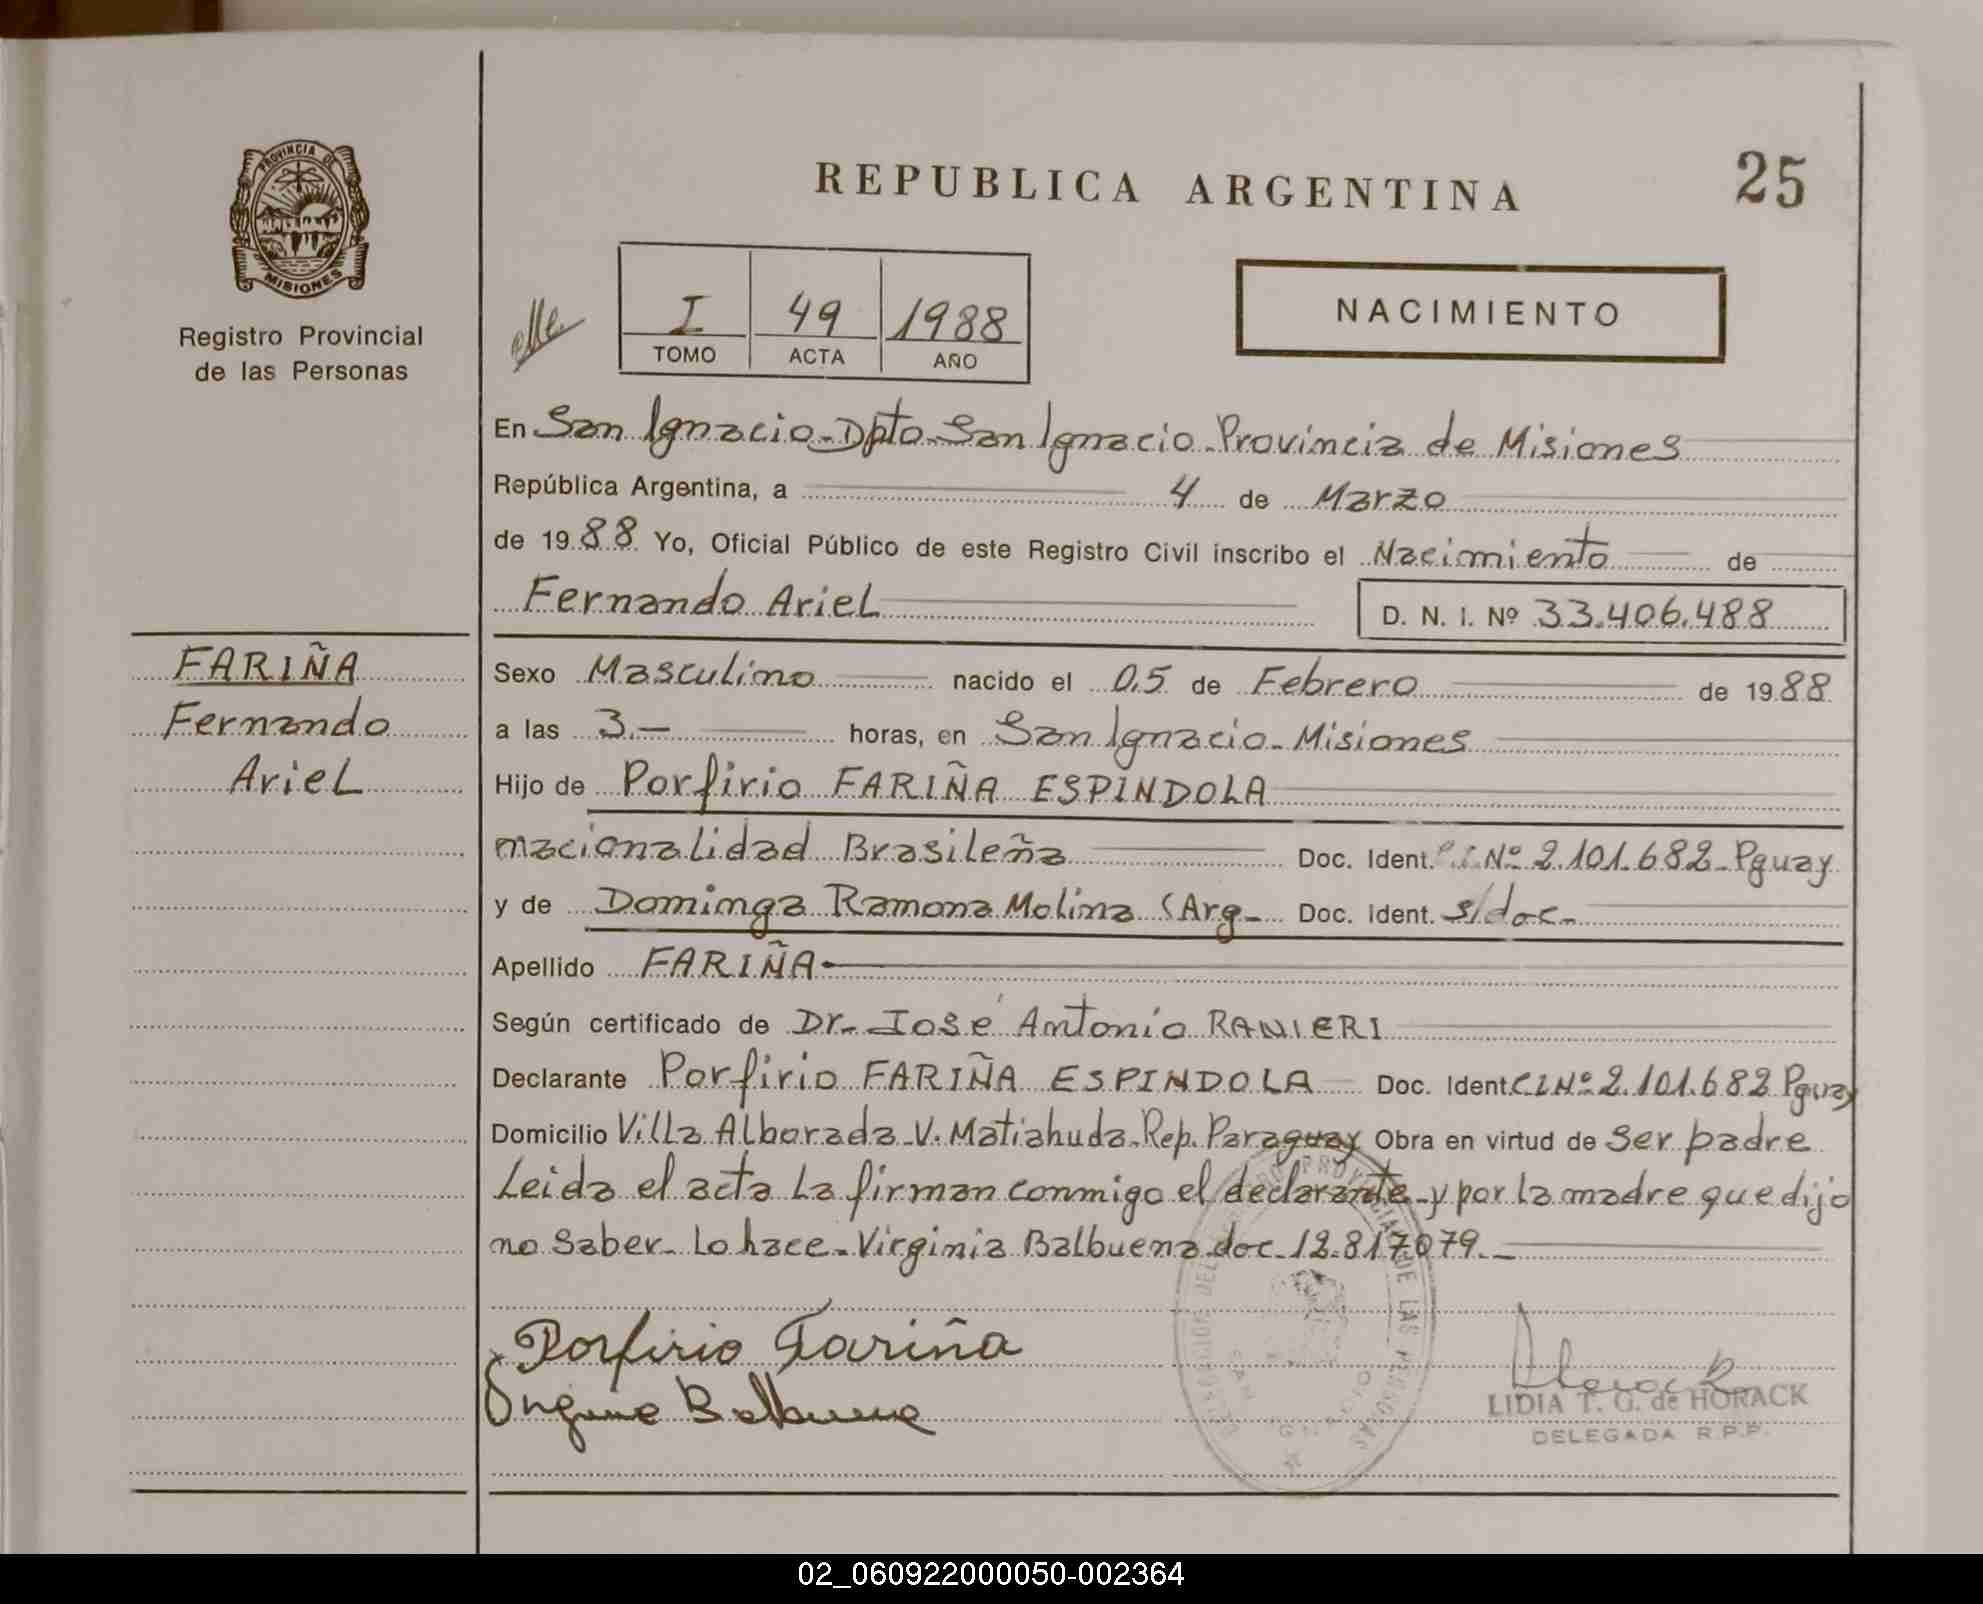 REPUBLICA ARGENTINA
25
PROVINCIA DE
MISIONES
Registro Provincial
de las Personas
I 49 1988
TOMO ACTA AÑO
NACIMIENTO
En San Ignacio-Dpto-San Ignacio-Provincia de Misiones
República Argentina, a 4 de Marzo
de 1988 Yo, Oficial Público de este Registro Civil inscribo el Nacimiento de
Fernando Ariel D. N. I. Nº 33.406.488
FARIÑA
Fernando
Ariel
Sexo Masculino nacido el 05 de Febrero de 1988
a las 3.- horas, en San Ignacio-Misiones
Hijo de Porfirio FARIÑA ESPINDOLA
nacionalidad Brasileña Doc. Ident. C.I.Nº 2.101.682-Pguay
y de Dominga Ramona Molina (Arg- Doc. Ident. s/doc-
Apellido FARIÑA
Según certificado de Dr- José Antonio RANIERI
Declarante Porfirio FARIÑA ESPINDOLA Doc. Ident C I Nº 2.101.682 Pguay
Domicilio Villa Alborada-V. Matiahuda-Rep. Paraguay Obra en virtud de ser padre
Leida el acta la firman conmigo el declarante-y por la madre que dijo
no saber-lo hace-Virginia Balbuena doc-12.817079.-
Porfirio Fariña
Balbuena
LIDIA T. G. de HORACK
DELEGADA R.P.P.
02_060922000050-002364